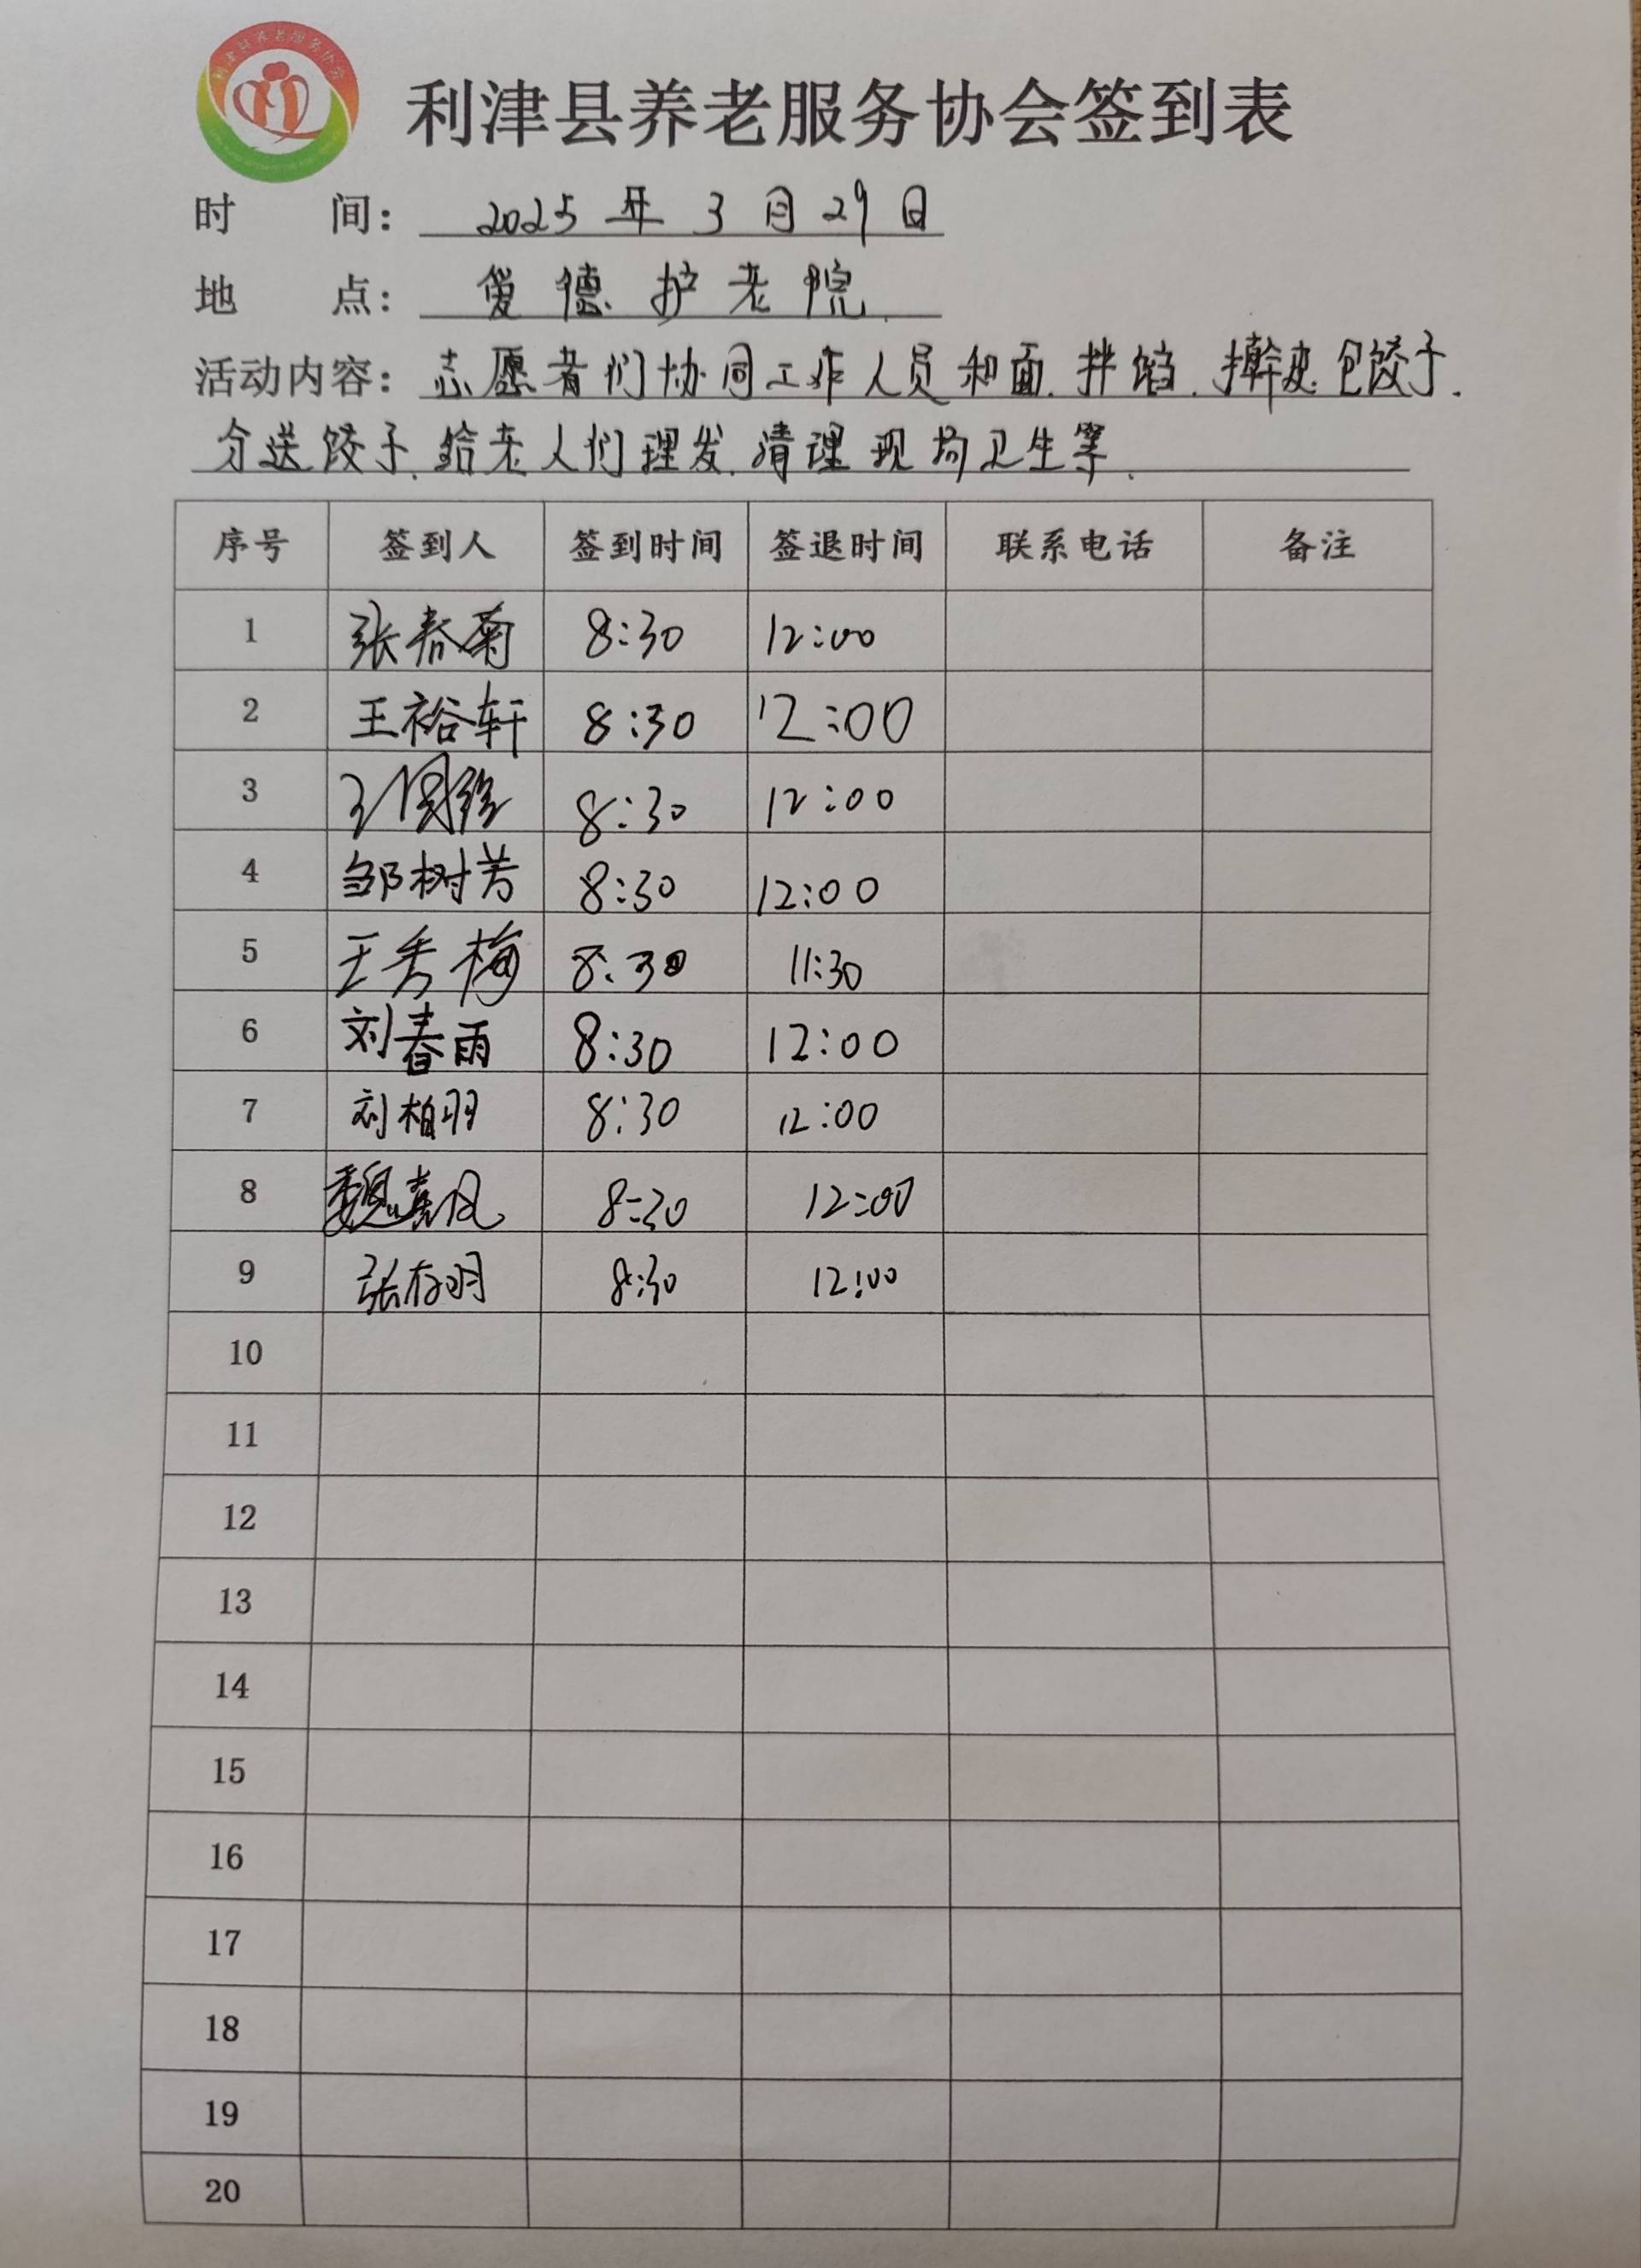 利津县养老服务协会
利津县养老服务协会签到表
时 间： 2025年3月29日
地 点： 爱德护老院
活动内容： 志愿者们协同工作人员和面.拌馅.擀皮包饺子.
分送饺子.给老人们理发.清理现场卫生等.
序号 签到人 签到时间 签退时间 联系电话 备注
1 张春菊 8:30 12:00
2 王裕轩 8:30 12:00
3 8:30 12:00
4 邹树芳 8:30 12:00
5 王秀梅 8:30 11:30
6 刘春雨 8:30 12:00
7 刘柏羽 8:30 12:00
8 魏 8:30 12:00
9 张存明 8:30 12:00
10
11
12
13
14
15
16
17
18
19
20